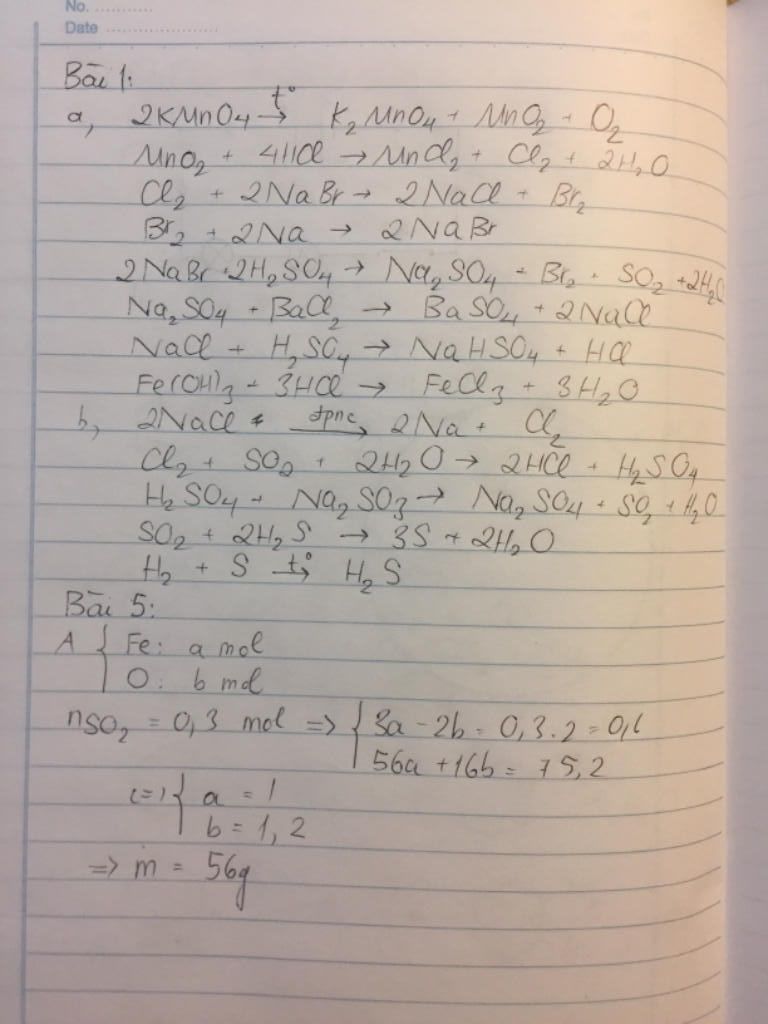 No. ............
Date ........................
Bài 1:
a, 2KMnO4 t°→ K2MnO4 + MnO2 + O2
MnO2 + 4HCl → MnCl2 + Cl2 + 2H2O
Cl2 + 2NaBr → 2NaCl + Br2
Br2 + 2Na → 2NaBr
2NaBr + 2H2SO4 → Na2SO4 + Br2 + SO2 + 2H2O
Na2SO4 + BaCl2 → BaSO4 + 2NaCl
NaCl + H2SO4 → NaHSO4 + HCl
Fe(OH)3 + 3HCl → FeCl3 + 3H2O
b, 2NaCl đpnc→ 2Na + Cl2
Cl2 + SO2 + 2H2O → 2HCl + H2SO4
H2SO4 + Na2SO3 → Na2SO4 + SO2 + H2O
SO2 + 2H2S → 3S + 2H2O
H2 + S t°→ H2S
Bài 5:
A { Fe: a mol
O: b mol
nSO2 = 0,3 mol => { 3a - 2b = 0,3.2 = 0,6
56a + 16b = 75,2
(=) { a = 1
b = 1,2
=> m = 56g